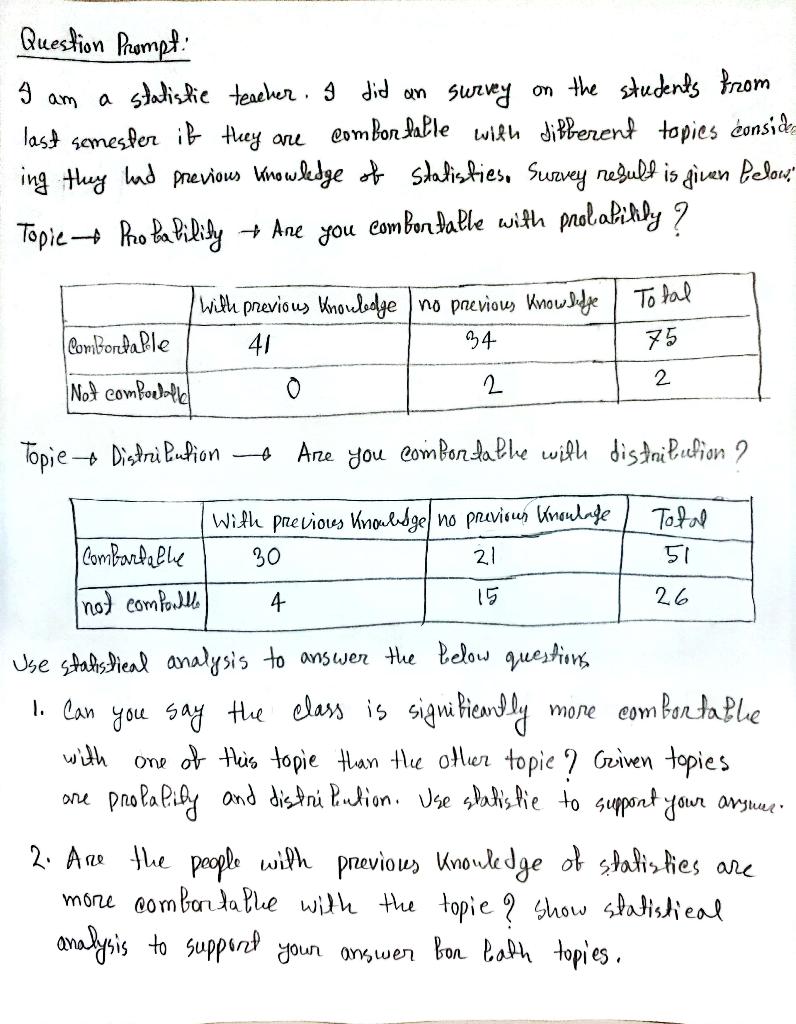 Question Prompt:
I am a statistic teacher. I did an survey on the students from
last semester if they are comfortable with different topics conside
ing they had previous knowledge of statisties. Survey result is given below:
Topic → Probability → Are you comfortable with probability?
With previous knowledge no previous knowledge Total
Comfortable 41 34 75
Not comfortable 0 2 2
Topic → Distribution → Are you comfortable with distribution?
With previous knowledge no previous knowledge Total
Comfortable 30 21 51
not comfortable 4 15 26
Use statistical analysis to answer the below questions
1. Can you say the class is significantly more comfortable
with one of this topic than the other topic? Given topics
are probability and distribution. Use statistic to support your
2. Are the people with previous knowledge of statisties are
more comfortable with the topic? show statistical
analysis to support your answer for both topics.